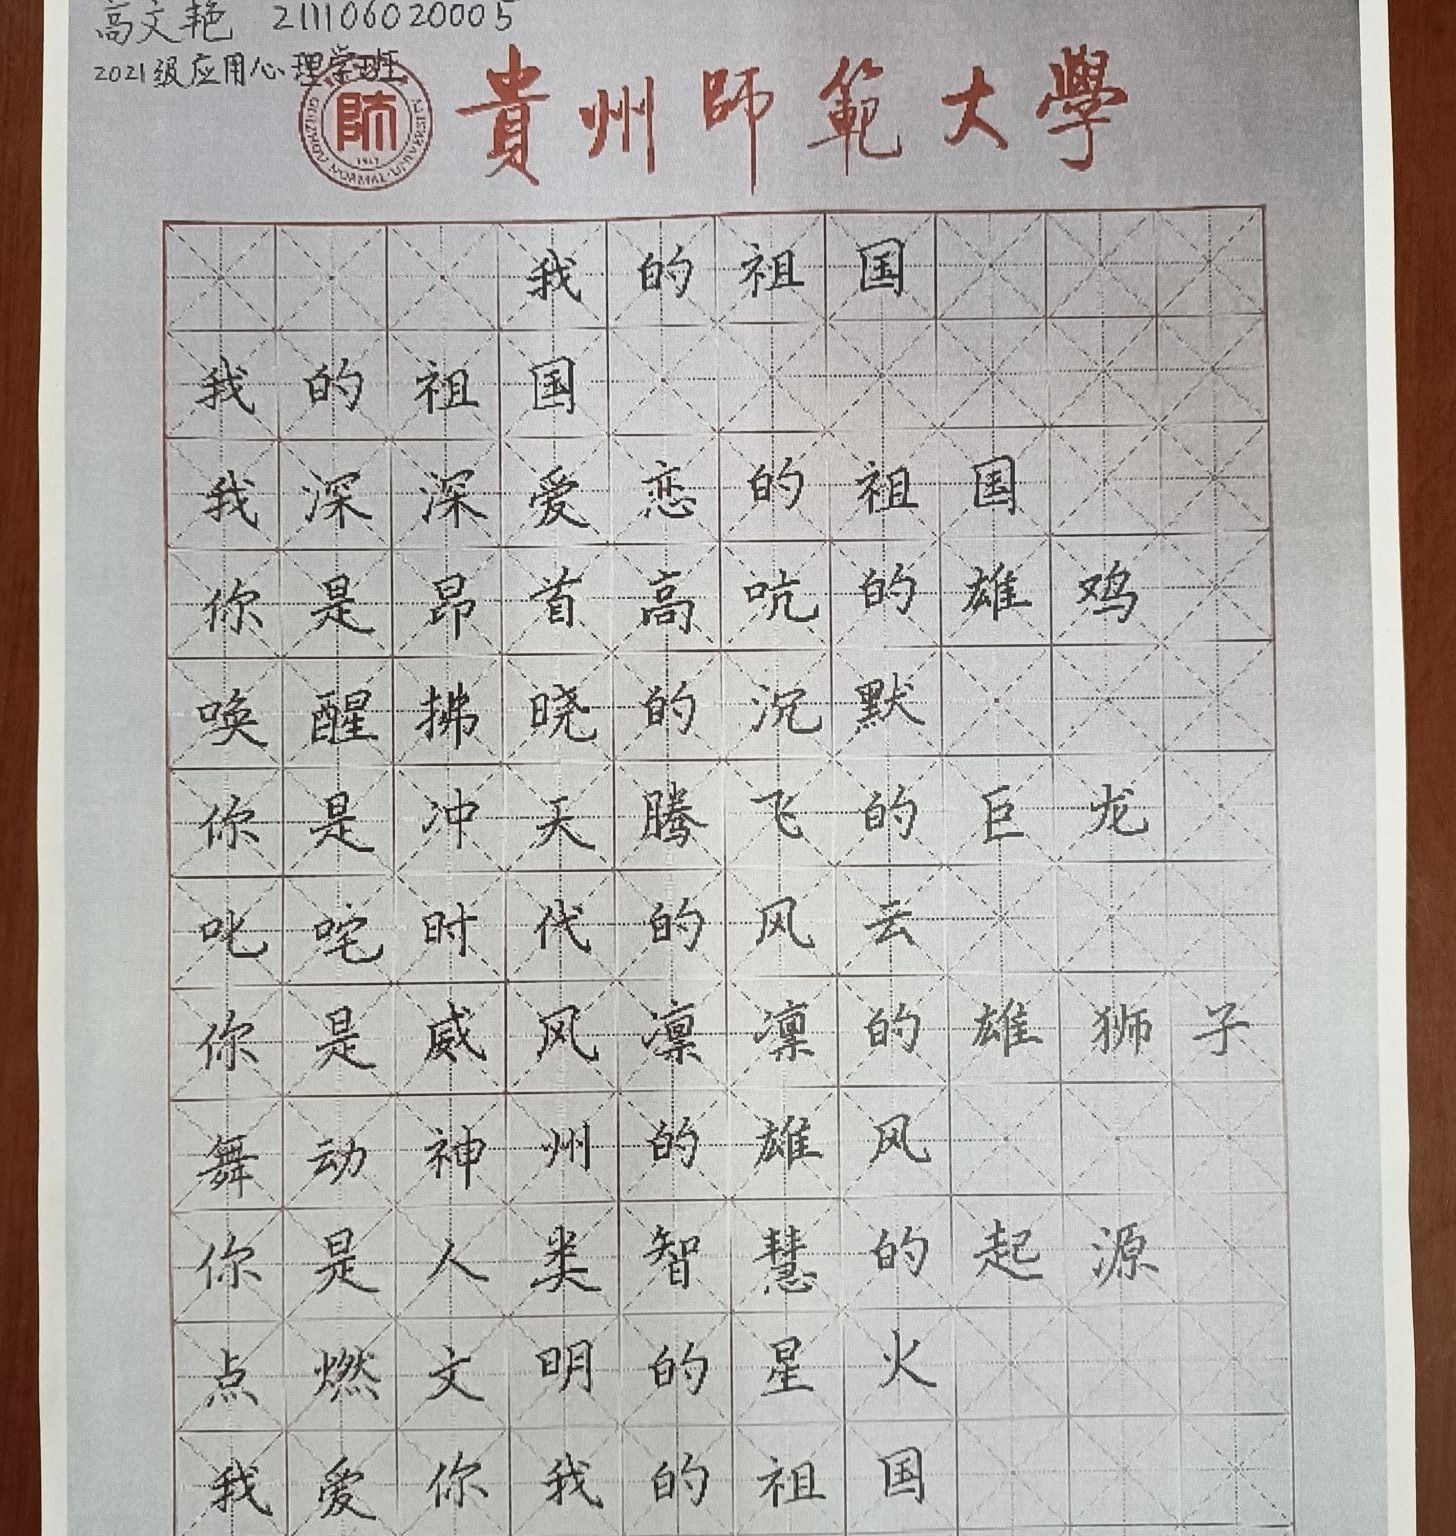 高文艳 211106020005
2021级应用心理学班
貴州師範大學
師
GUIZHOU NORMAL UNIVERSITY
1941
我的祖国
我的祖国
我深深爱恋的祖国
你是昂首高吭的雄鸡
唤醒拂晓的沉默
你是冲天腾飞的巨龙
叱咤时代的风云
你是威风凛凛的雄狮子
舞动神州的雄风
你是人类智慧的起源
点燃文明的星火
我爱你我的祖国